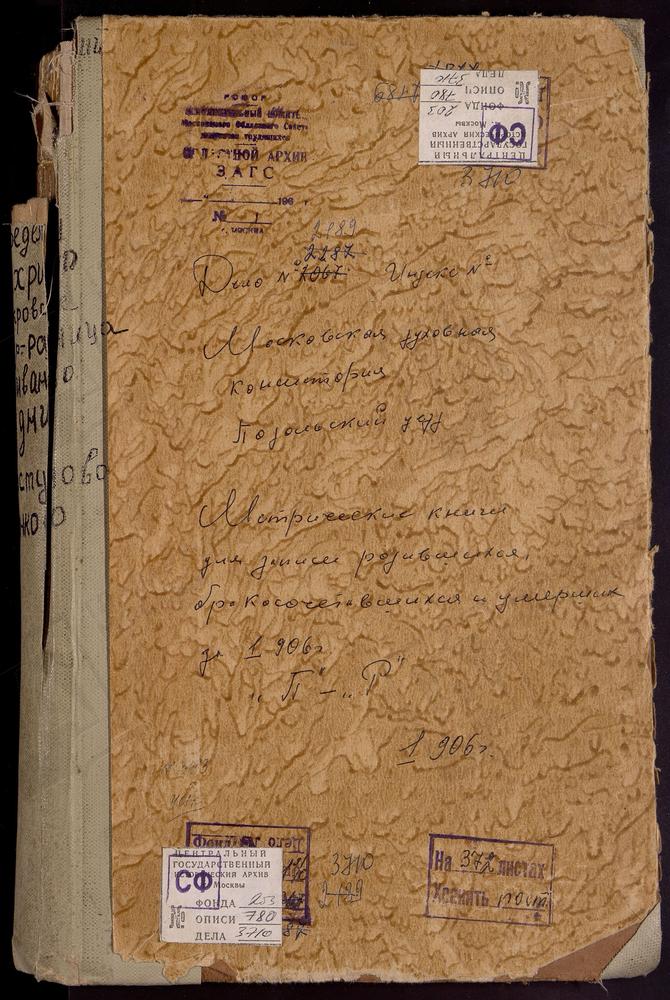 РСФСР
ИСПОЛНИТЕЛЬНЫЙ КОМИТЕ
Московского Областного Совета
депутатов трудящихся
ОБЛАСТНОЙ АРХИВ
ЗАГС
196 г.
№ 1
г. МОСКВА
ЦЕНТРАЛЬНЫЙ
ГОСУДАРСТВЕННЫЙ
ИСТОРИЧЕСКИЙ АРХИВ
г. Москвы
СФ
ФОНДА 203
ОПИСИ 780
ДЕЛА 3710
3710
2189
2287
Дело № 2067. Индекс №
Московская духовная
консистория
Подольский уезд
Метрические книги
для записи родившихся,
бракосочетавшихся и умерших
за 1906г.
"П" - "Р"
1906г.
ЦЕНТРАЛЬНЫЙ
ГОСУДАРСТВЕННЫЙ
ИСТОРИЧЕСКИЙ АРХИВ
г. Москвы
СФ
ФОНДА 203
ОПИСИ 780
ДЕЛА 3710
3710
2189
На 372 листах
Хранить пост